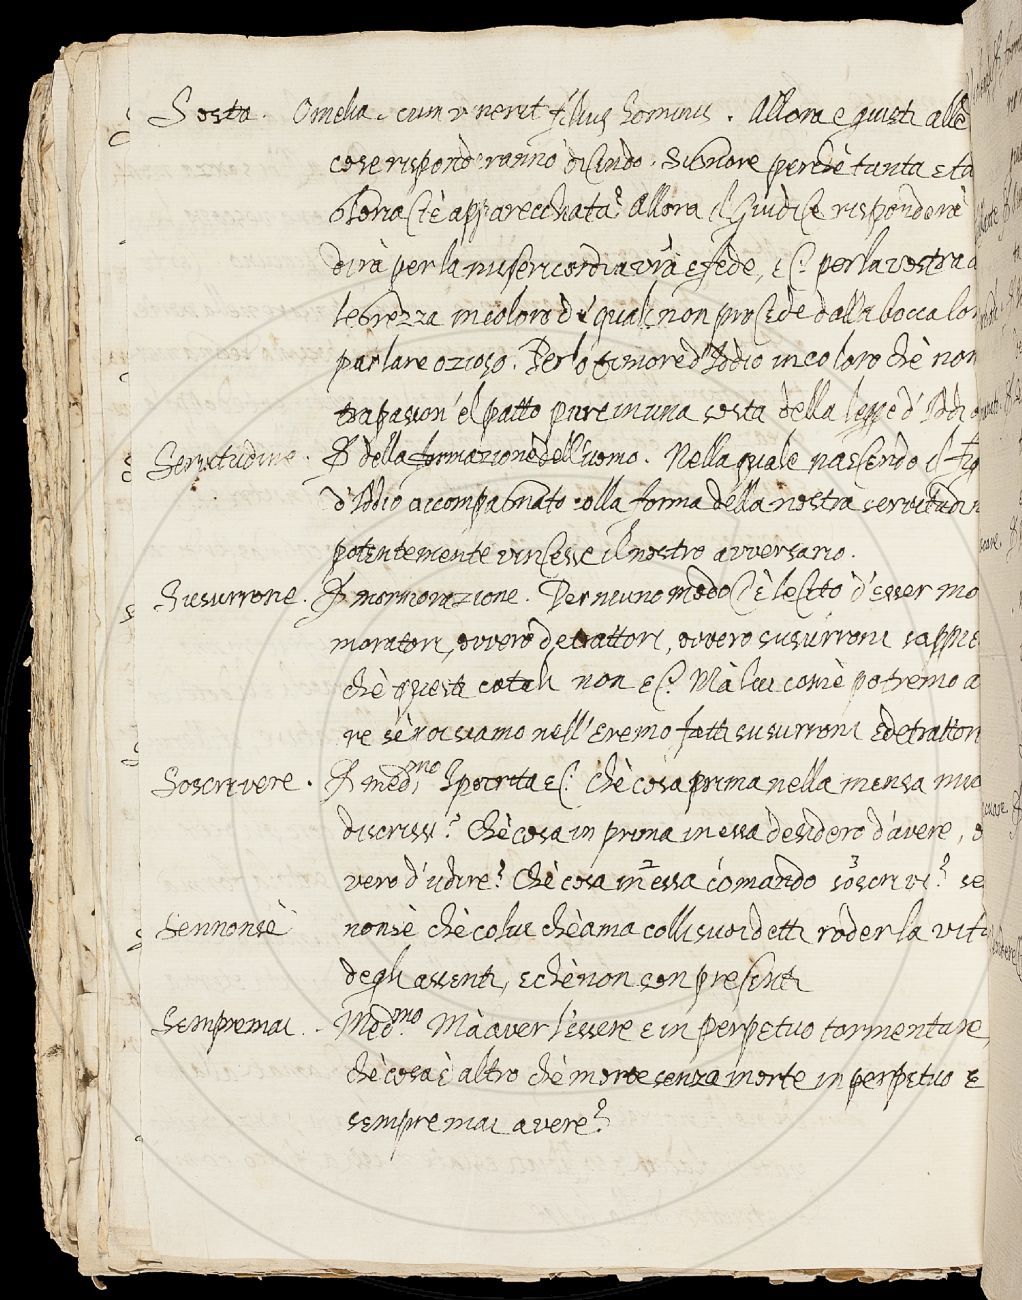 Sosta. Omelia. cum venerit filius hominis. Allora e giusti alle
cose risponderanno dicendo. Signore perchè tanta e ta
gloria ci è apparecchiata? Allora il Giudice risponderà
dirà per la misericordia vrã e fede, ec. per la vostra a
legrezza in coloro d' quali non procede dalla bocca lor
parlare ozioso. Per lo timore d'Iddio in coloro chè non
trapasson' el patto pure in una sosta della legge d'Iddi
Servitudine. della formazione dell'uomo. Nella quale nascendo il fig
d'Iddio accompagnato colla forma della nostra servitudin
potentemente vincesse il nostro avversario.
Susurrone. mormorazione. Per niuno modo ci è lecito d'esser mo
moratori, ovvero detrattori, ovvero susurroni sappie
chè questi cotali non ec. Mà lui come potremo a
re sè noi siamo nell'eremo fatti susurroni e detrattori
Soscrivere. med.mo Ipocrita ec. Chè cosa prima nella mensa mia
discrissi? Chè cosa in prima in essa desidero d'avere, o
vero d'udire? Chè cosa in essa comando soscrivi? se
Sennonsè nonsè chè colui chè ama colli suoi detti roder la vita
degli assenti, e chè non son presenti
Sempremai. Med.mo Mà aver l'essere e in perpetuo tormentare,
chè cosa è altro chè morte senza morte in perpetuo e
sempremai avere?